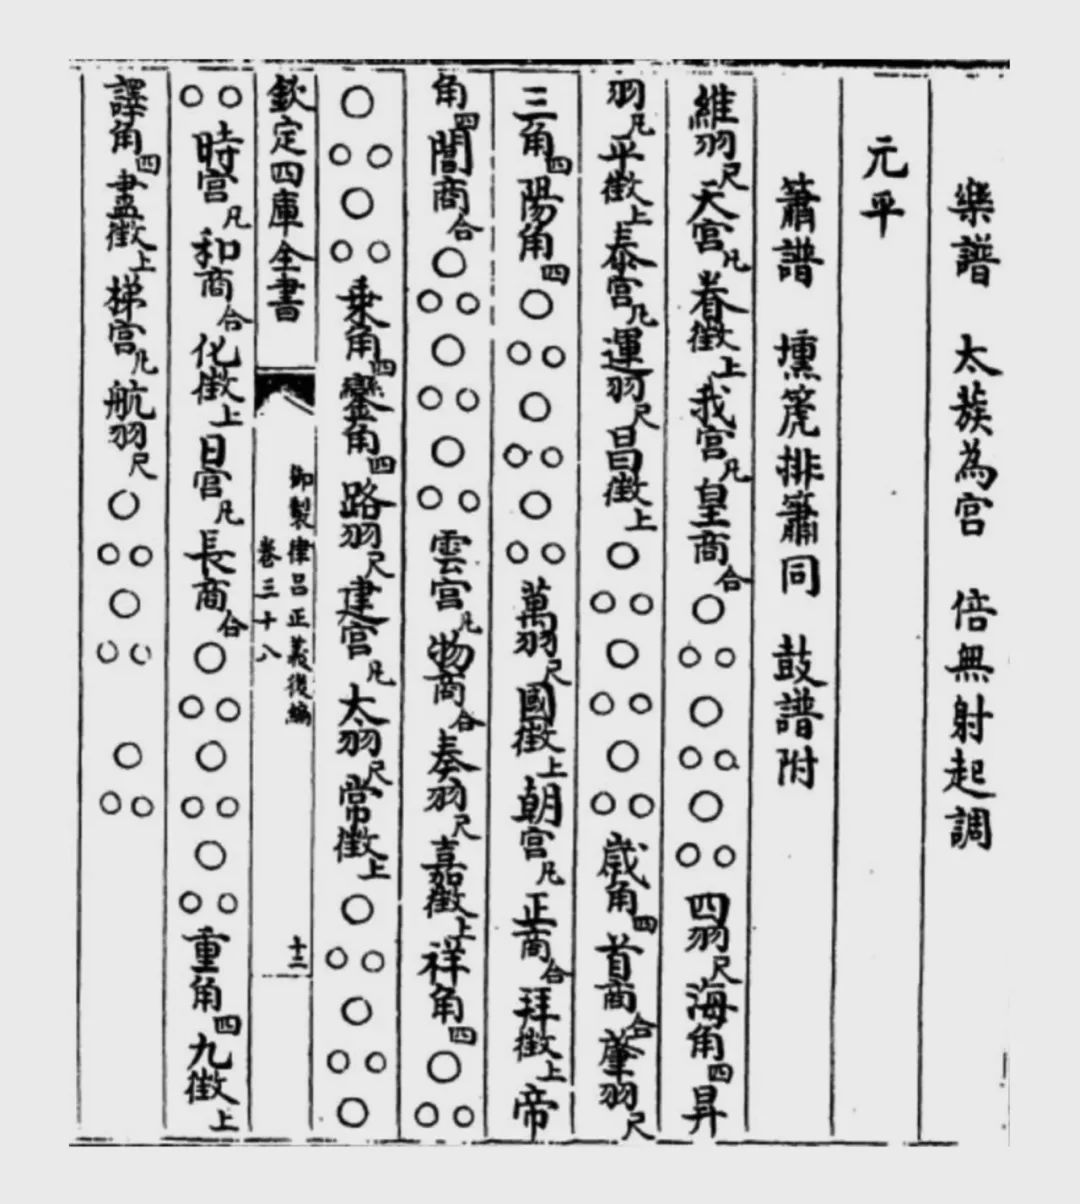 樂譜 太蔟為宮 倍無射起調
元平
簫譜 壎篪排簫同 鼓譜附
維羽尺天宮凡眷徵上我宮凡皇商合○○○○○○○○○四羽尺海角四昇
羽凡平徵上泰宮凡運羽尺昌徵上○○○○○○○○○歲角四首商合肇羽尺
三角四陽角四○○○○○○○○○萬羽尺國徵上朝宮凡正商合拜徵上帝
角四閶商合○○○○○○○○○雲宮凡物商合奏羽尺嘉徵上祥角四○○○
○○○○○○乘角四鑾角四路羽尺建宮凡太羽尺常徵上○○○○○○○
欽定四庫全書
御製律呂正義後編
卷三十八
十二
○○時宮凡和商合化徵上日宮凡長商合○○○○○○○○○重角四九徵上
譯角四盡徵上梯宮凡航羽尺○○○○○○ ○○○